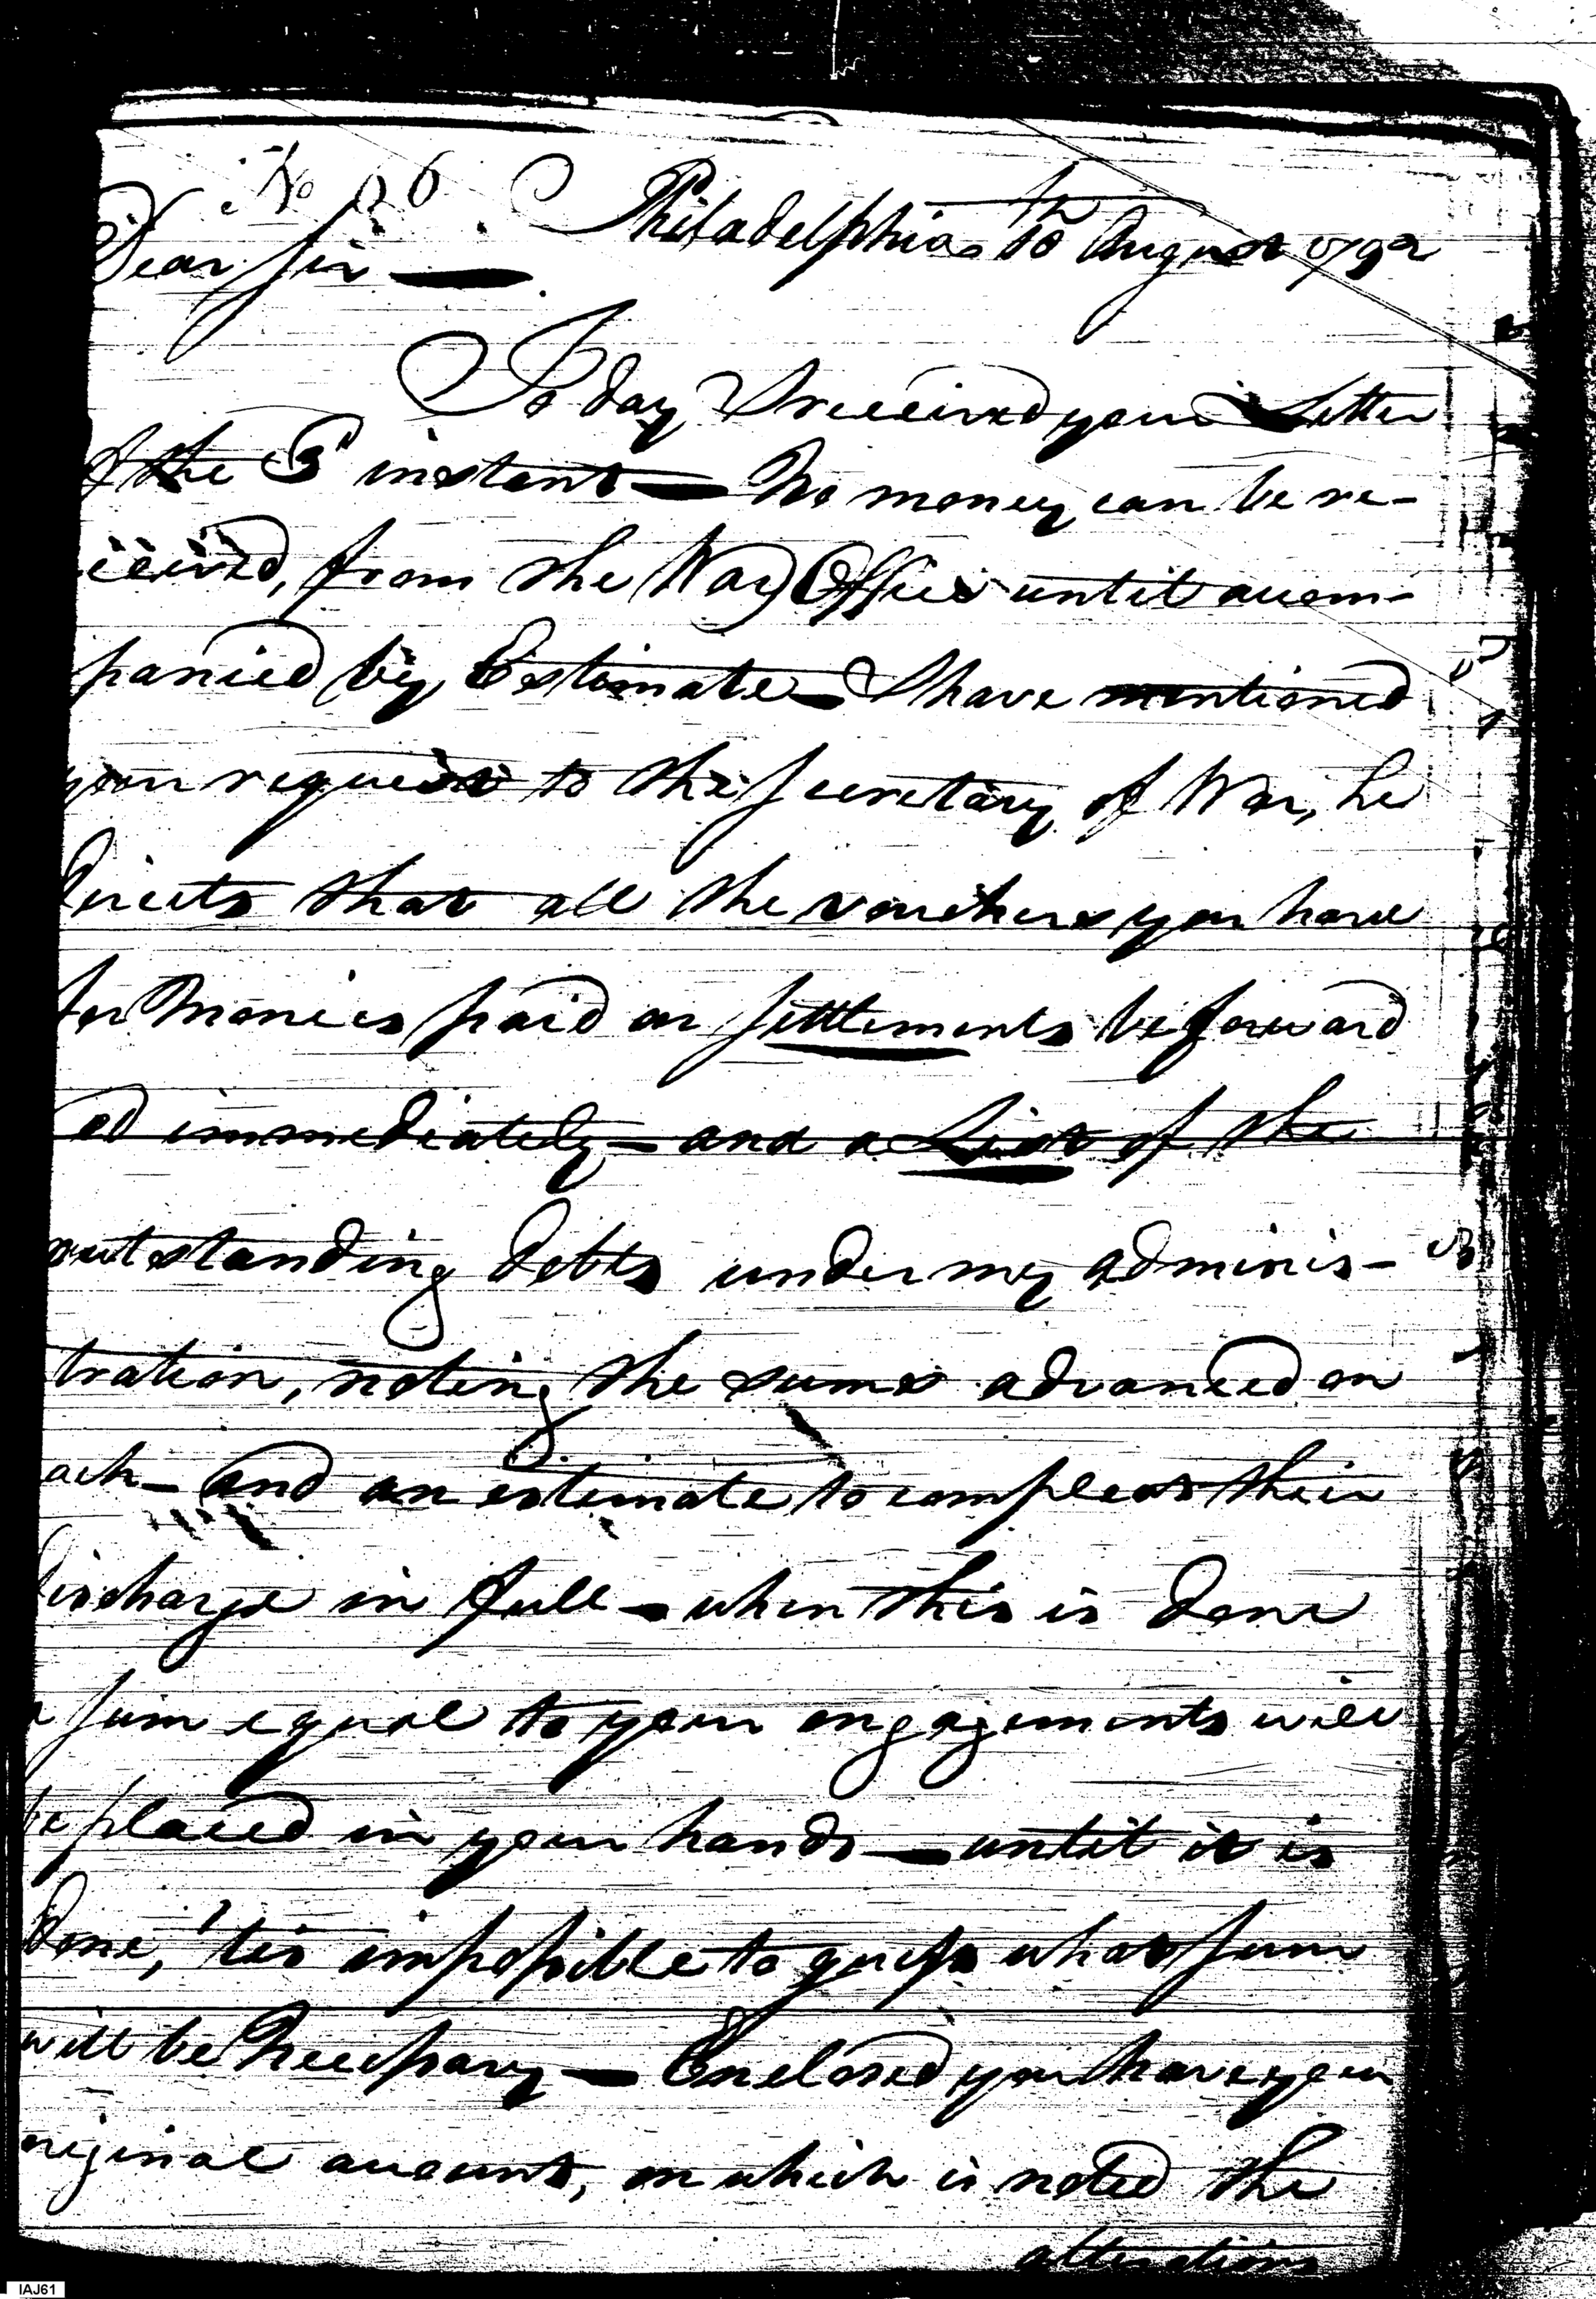 No 06
Philadelphia 10th August 1792
Dear Sir
To day I received your Letter
of the 3d instant — No money can be re-
ceived, from the War Office until accom-
panied by Estimate — I have mentioned
your request to the Secretary of War, he
directs that all the vouchers you have
for Monies paid on Settlements be forward
ed immediately — and a List of the
outstanding debts under my adminis-
tration, noting the sums advanced on
each — and an estimate to compleat their
discharge in full — when this is done
a Sum equal to your engagements will
be placed in your hands — until it is
done, 'tis impossible to guess what Sum
will be Necessary — Enclosed you have your
original account, on which is noted the
alterations
IAJ61